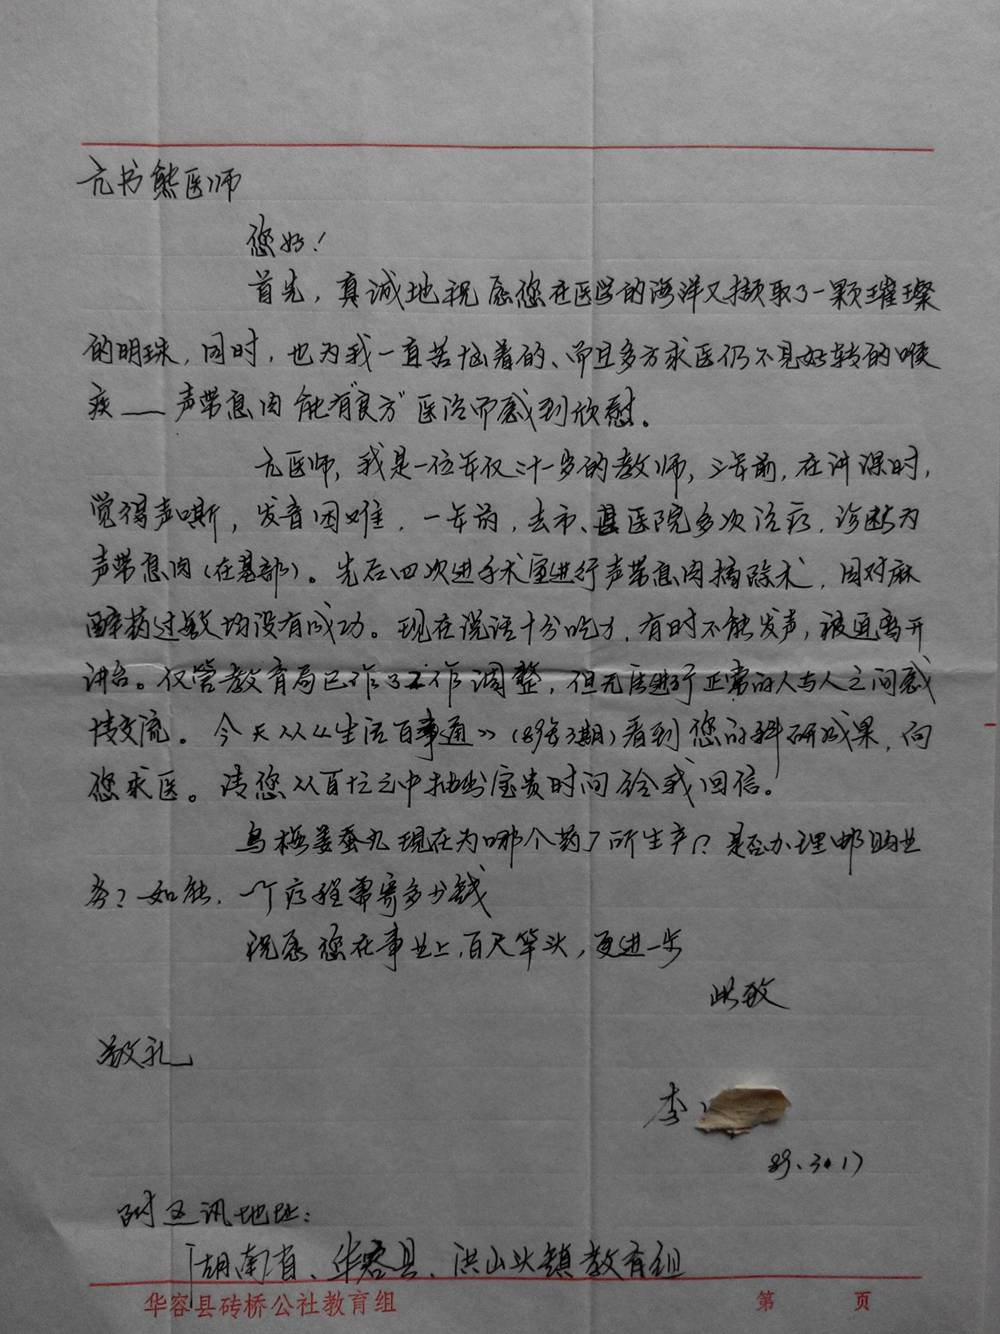 亢书熊医师
您好！
首先，真诚地祝愿您在医学的海洋又撷取了一颗璀璨
的明珠，同时，也为我一直苦恼着的、而且多方求医仍不见好转的喉
疾——声带息肉能有“良方”医治而感到欣慰。
亢医师，我是一位年仅二十一岁的教师，三年前，在讲课时，
觉得声嘶，发音困难，一年前，去市、县医院多次治疗，诊断为
声带息肉（在基部）。先后四次进手术室进行声带息肉摘除术，因对麻
醉药过敏均没有成功。现在说话十分吃力，有时不能发声，被逼离开
讲台。仅管教育局已作了工作调整，但无法进行正常的人与人之间感
情交流。今天从《生活百事通》（89年3期）看到您的科研成果，向
您求医。请您从百忙之中抽出宝贵时间给我回信。
乌梅姜蚕丸现在为哪个药厂所生产？是否办理邮购业
务？如能，一个疗程需寄多少钱
祝愿您在事业上，百尺竿头，更进一步
此致
敬礼
李
89.3.17
附通讯地址：
湖南省、华容县、洪山头镇教育组
华容县砖桥公社教育组 第 页